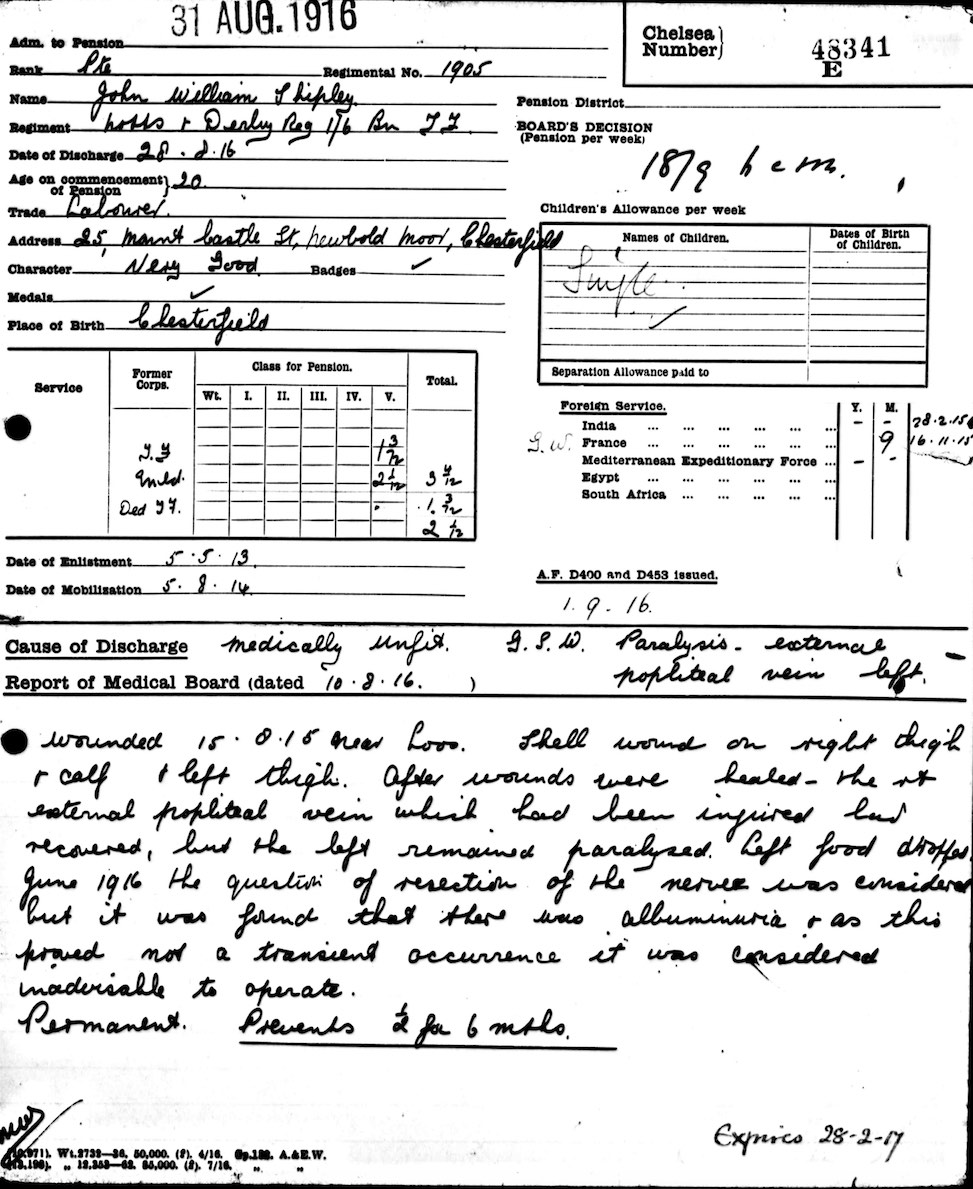 31 AUG. 1916
Adm. to Pension
Chelsea Number } 48341 E
Rank Pte Regimental No. 1905
Name John William Shipley
Pension District
Regiment Notts & Derby Reg 1/6 Bn T F
BOARD'S DECISION
(Pension per week)
18/9
Date of Discharge 28.8.16
Age on commencement of Pension } 20
Trade Labourer.
Children's Allowance per week
Address 25, Mount Castle St, Newbold Moor, Chesterfield
Names of Children. Dates of Birth of Children.
Character Very Good Badges ✓
Single
Medals ✓
Place of Birth Chesterfield
Separation Allowance paid to
Service Former Corps. Class for Pension. Total.
Wt. I. II. III. IV. V.
Foreign Service. Y. M.
India ... ... ... ... ... ... - - 28.2.15
G.W. France ... ... ... ... ... 9 16.11.15
Mediterranean Expeditionary Force ... - -
Egypt ... ... ... ... ... ...
South Africa ... ... ... ... ...
T.F. 1 3/12
Embd. 2 1/12 3 4/12
Ded T.F. 1. 3/12
2 1/12
Date of Enlistment 5.5.13.
Date of Mobilization 5.8.14.
A.F. D400 and D453 issued.
1.9.16.
Cause of Discharge Medically Unfit. G.S.W. Paralysis - external
Report of Medical Board (dated 10.8.16. ) popliteal vein left.
Wounded 15.8.15 near Loos. Shell wound on right thigh
& calf & left thigh. After wounds were healed - the rt
external popliteal vein which had been injured had
recovered, but the left remained paralysed. Left food dropped
June 1916 the question of resection of the nerves was considered
but it was found that there was albuminuria & as this
proved not a transient occurrence it was considered
inadvisable to operate.
Permanent. Prevents ½ for 6 mths.
Expires 28-2-17
Wt. 2733—36. 50,000. (2). 4/16. Gp. 138. A.&E.W.
„ 12,353—62. 85,000. (2). 7/16. „ „